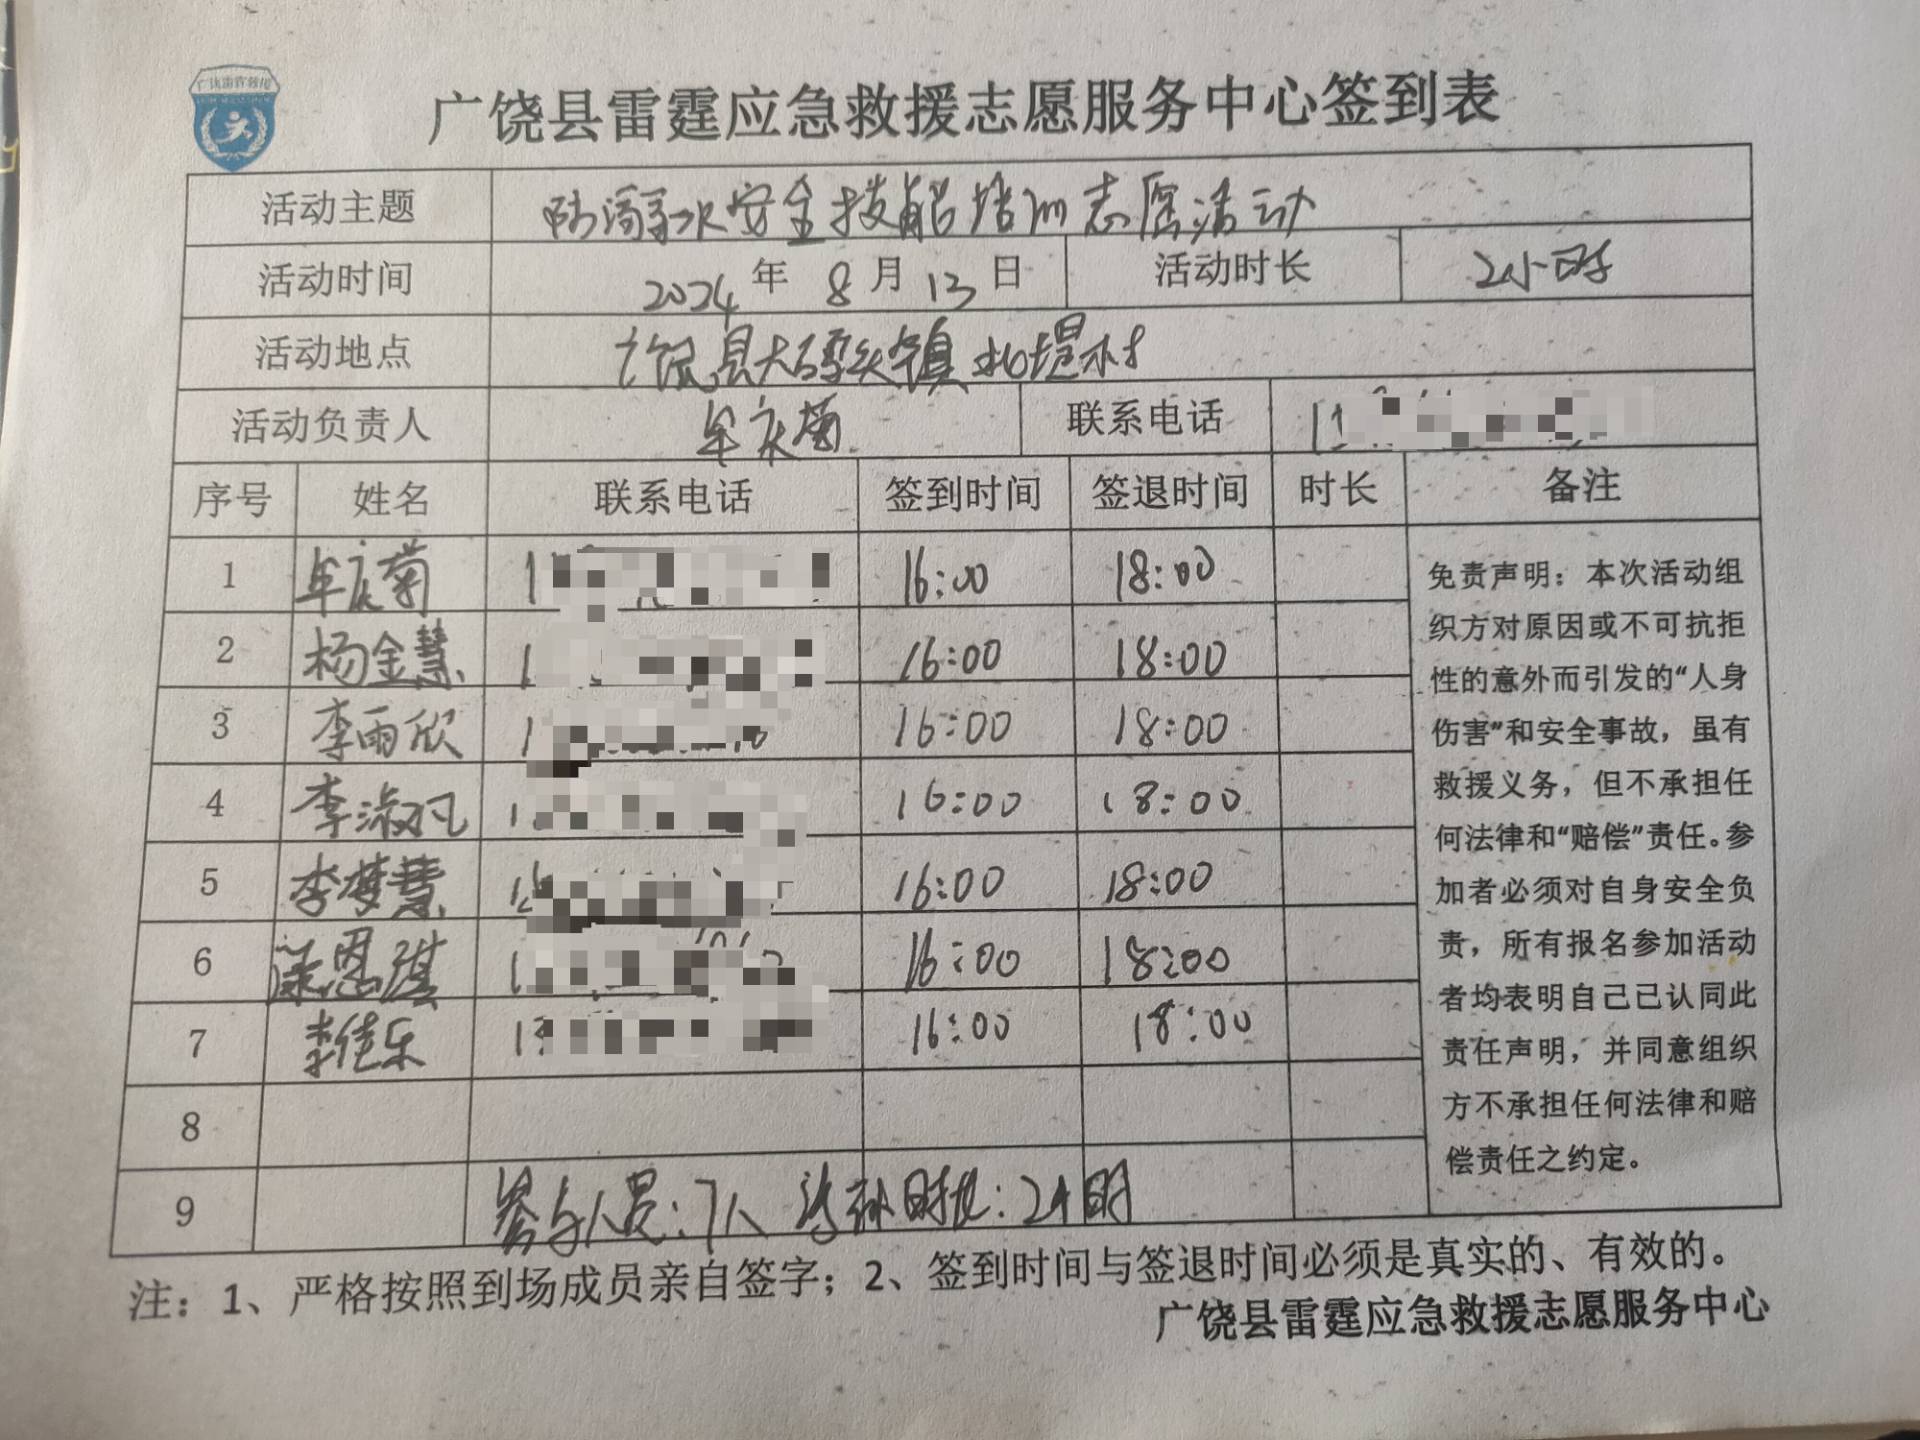 广饶雷霆救援
广饶县雷霆应急救援志愿服务中心签到表
活动主题 防溺水安全技能培训志愿活动
活动时间 2024年8月13日 活动时长 2小时
活动地点 广饶县大码头镇北堤村
活动负责人 牟庆菊 联系电话 1
序号 姓名 联系电话 签到时间 签退时间 时长 备注
1 牟庆菊 1 16:00 18:00
2 杨金慧 1 16:00 18:00
3 李雨欣 1 16:00 18:00
4 李淑凡 1 16:00 18:00
5 李梦慧 1 16:00 18:00
6 恩琪 1 16:00 18:00
7 李佳乐 1 16:00 18:00
8
9 参与人员:7人 活动时长:2小时
免责声明：本次活动组
织方对原因或不可抗拒
性的意外而引发的“人身
伤害”和安全事故，虽有
救援义务，但不承担任
何法律和“赔偿”责任。参
加者必须对自身安全负
责，所有报名参加活动
者均表明自己已认同此
责任声明，并同意组织
方不承担任何法律和赔
偿责任之约定。
注：1、严格按照到场成员亲自签字；2、签到时间与签退时间必须是真实的、有效的。
广饶县雷霆应急救援志愿服务中心